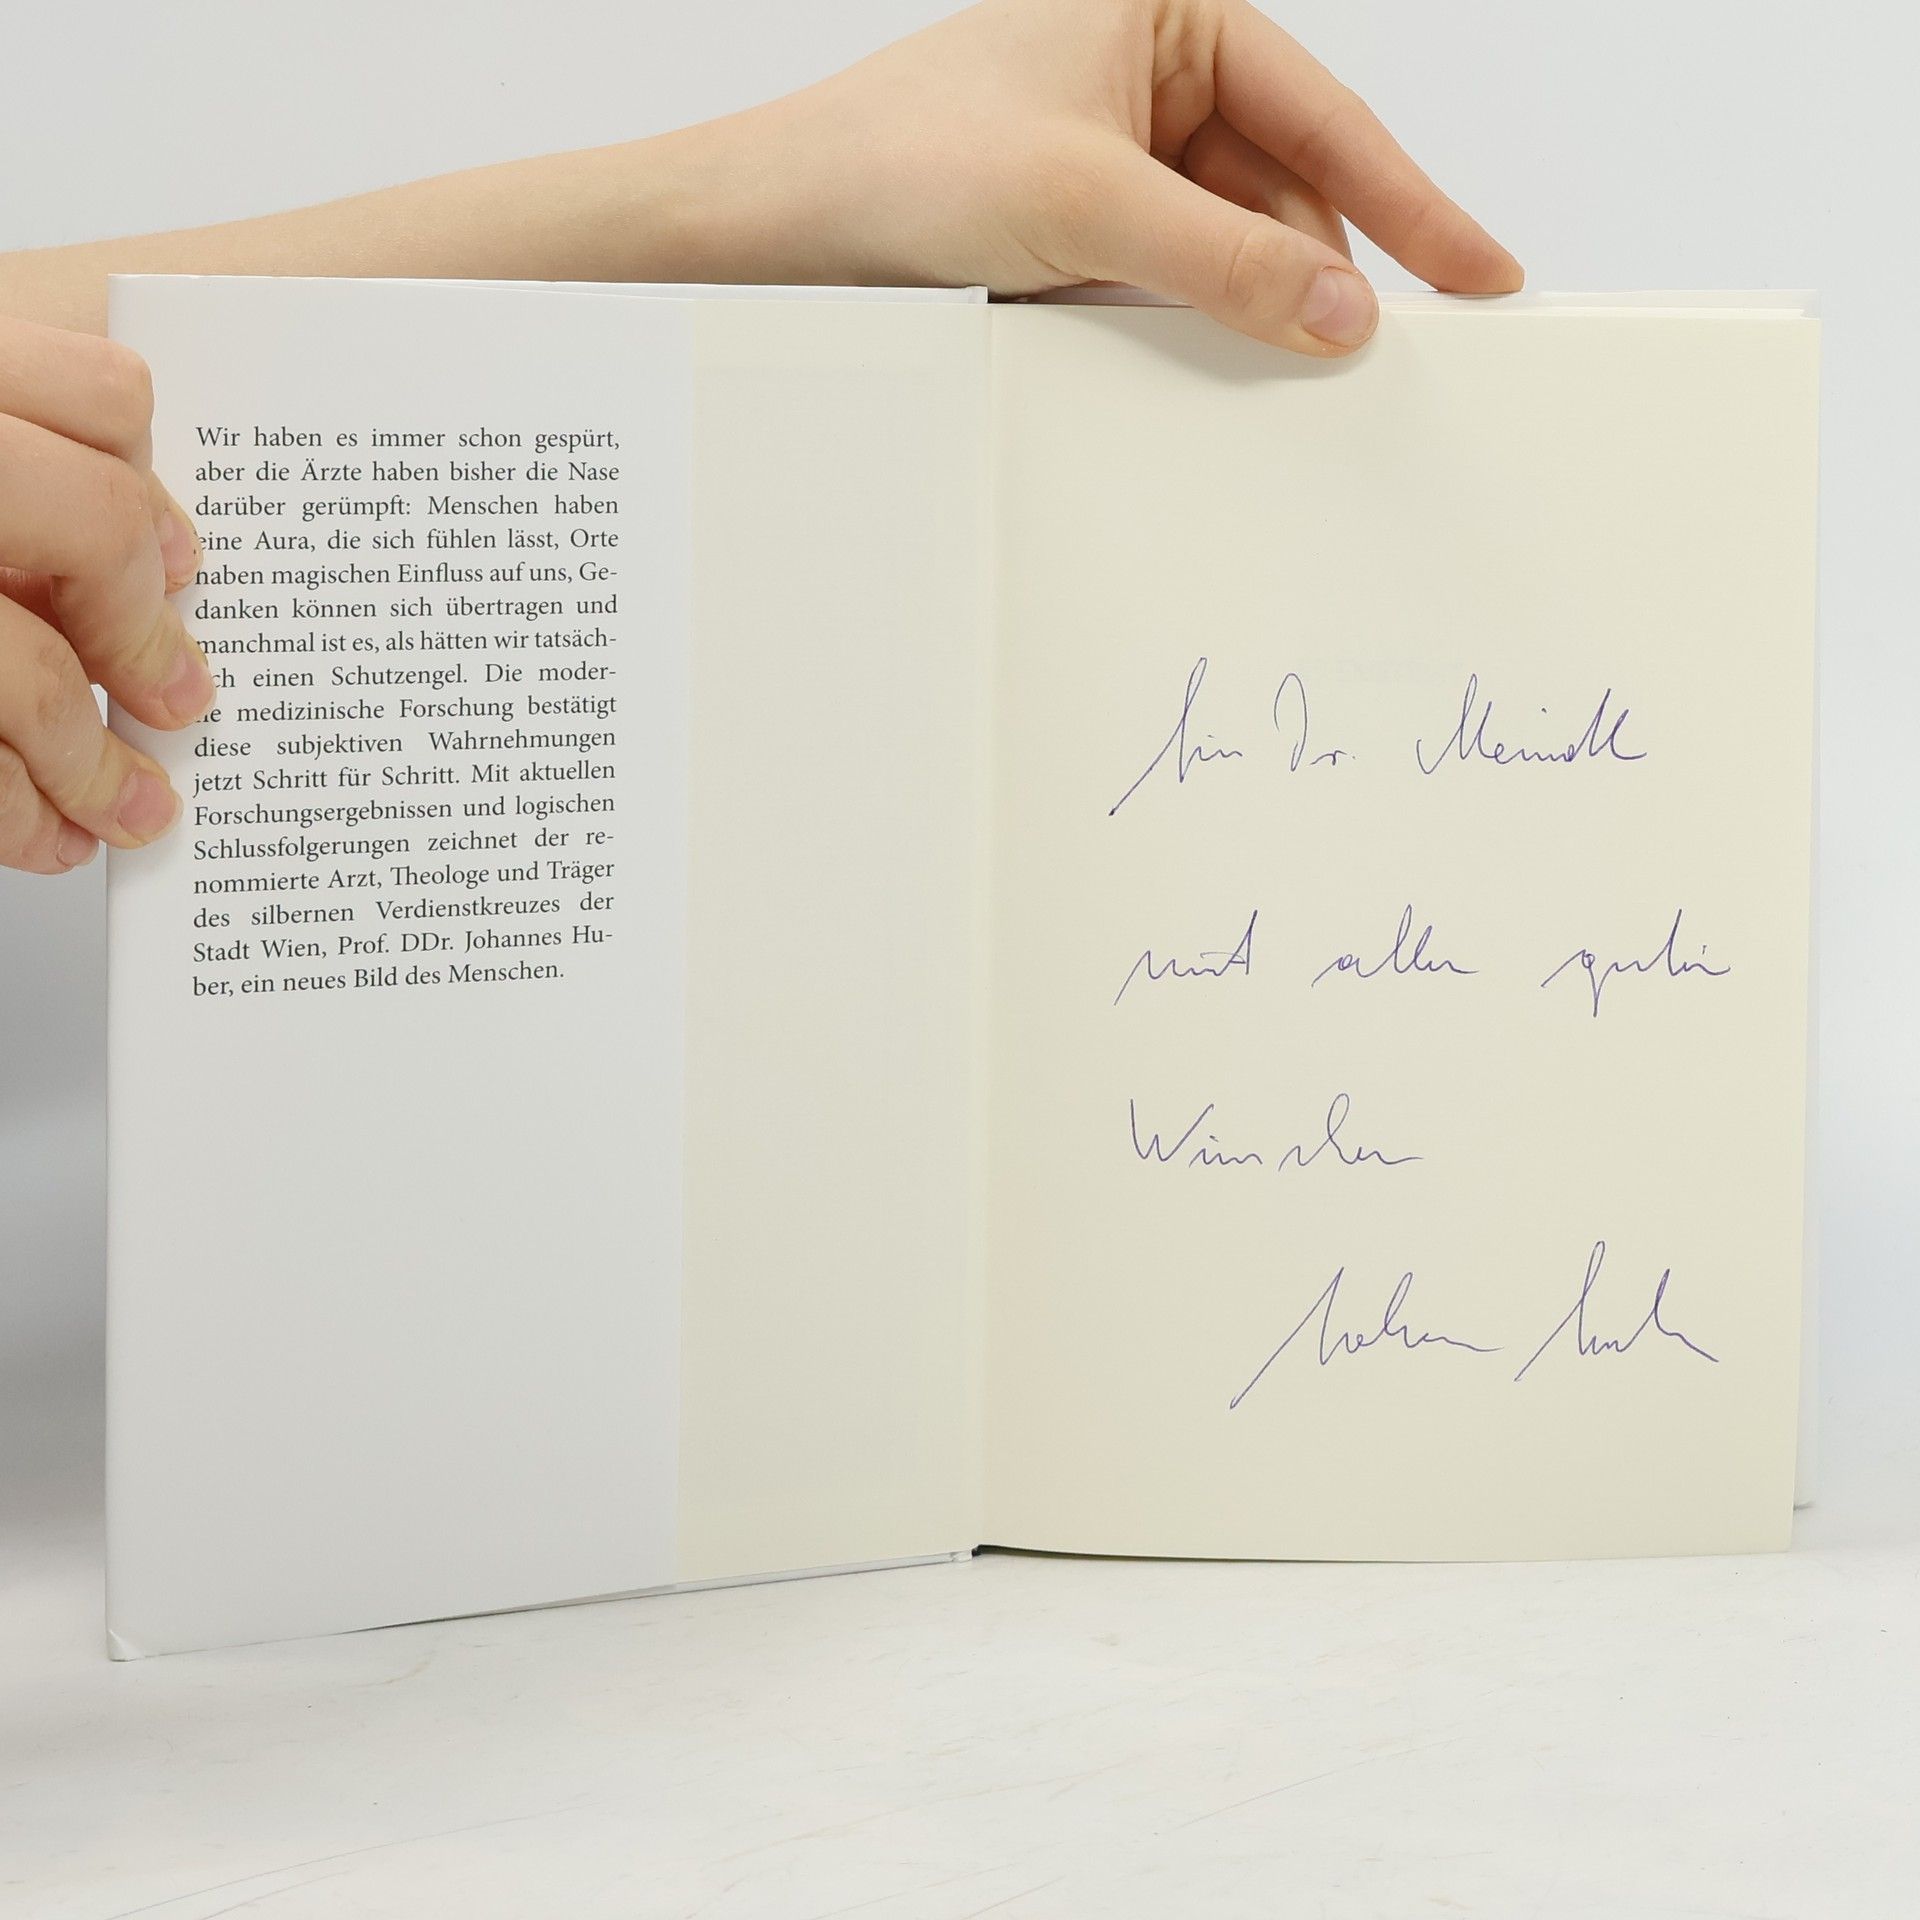 Wir haben es immer schon gespürt,
aber die Ärzte haben bisher die Nase
darüber gerümpft: Menschen haben
eine Aura, die sich fühlen lässt, Orte
haben magischen Einfluss auf uns, Ge-
danken können sich übertragen und
manchmal ist es, als hätten wir tatsäch-
ch einen Schutzengel. Die moder-
ne medizinische Forschung bestätigt
diese subjektiven Wahrnehmungen
jetzt Schritt für Schritt. Mit aktuellen
Forschungsergebnissen und logischen
Schlussfolgerungen zeichnet der re-
nommierte Arzt, Theologe und Träger
des silbernen Verdienstkreuzes der
Stadt Wien, Prof. DDr. Johannes Hu-
ber, ein neues Bild des Menschen.
Für Dr. Meindl
mit allen guten
Wünschen
Johannes Huber